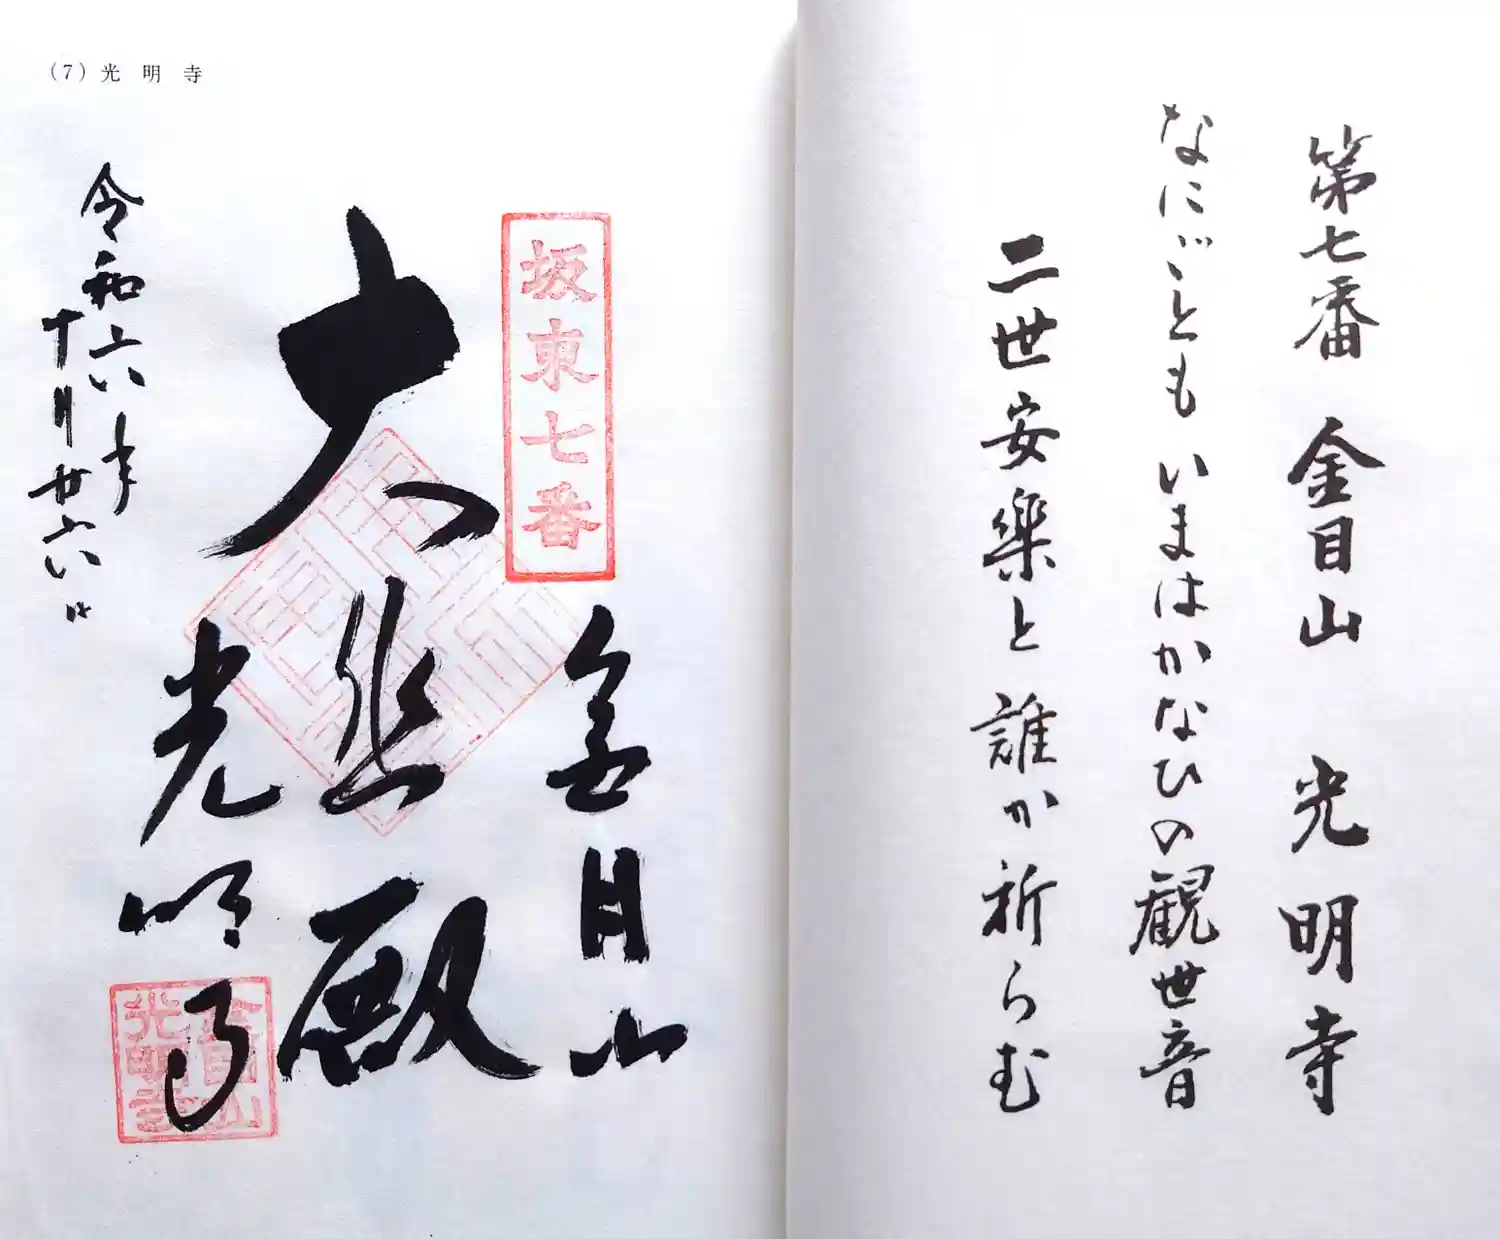 第七番 金目山 光明寺
なにごとも いまはかなひの観世音
二世安楽と 誰か祈らむ
(7)光明寺
坂東七番
金目山
大悲殿
光明寺
令和六年
十月廿六日
金目山
光明寺